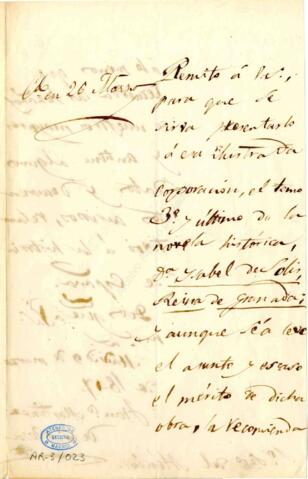 Cdo. en 20 Marzo
Remito á V.S.,
para que se
sirva presentarlo
á esa ilustrada
corporación, el tomo
3º y último de la
novela histórica,
Dª Ysabel de Solís,
Reina de Granada;
y aunque sea leve
el asunto y escaso
el mérito de dicha
obra, la recomienda
AR-3/023